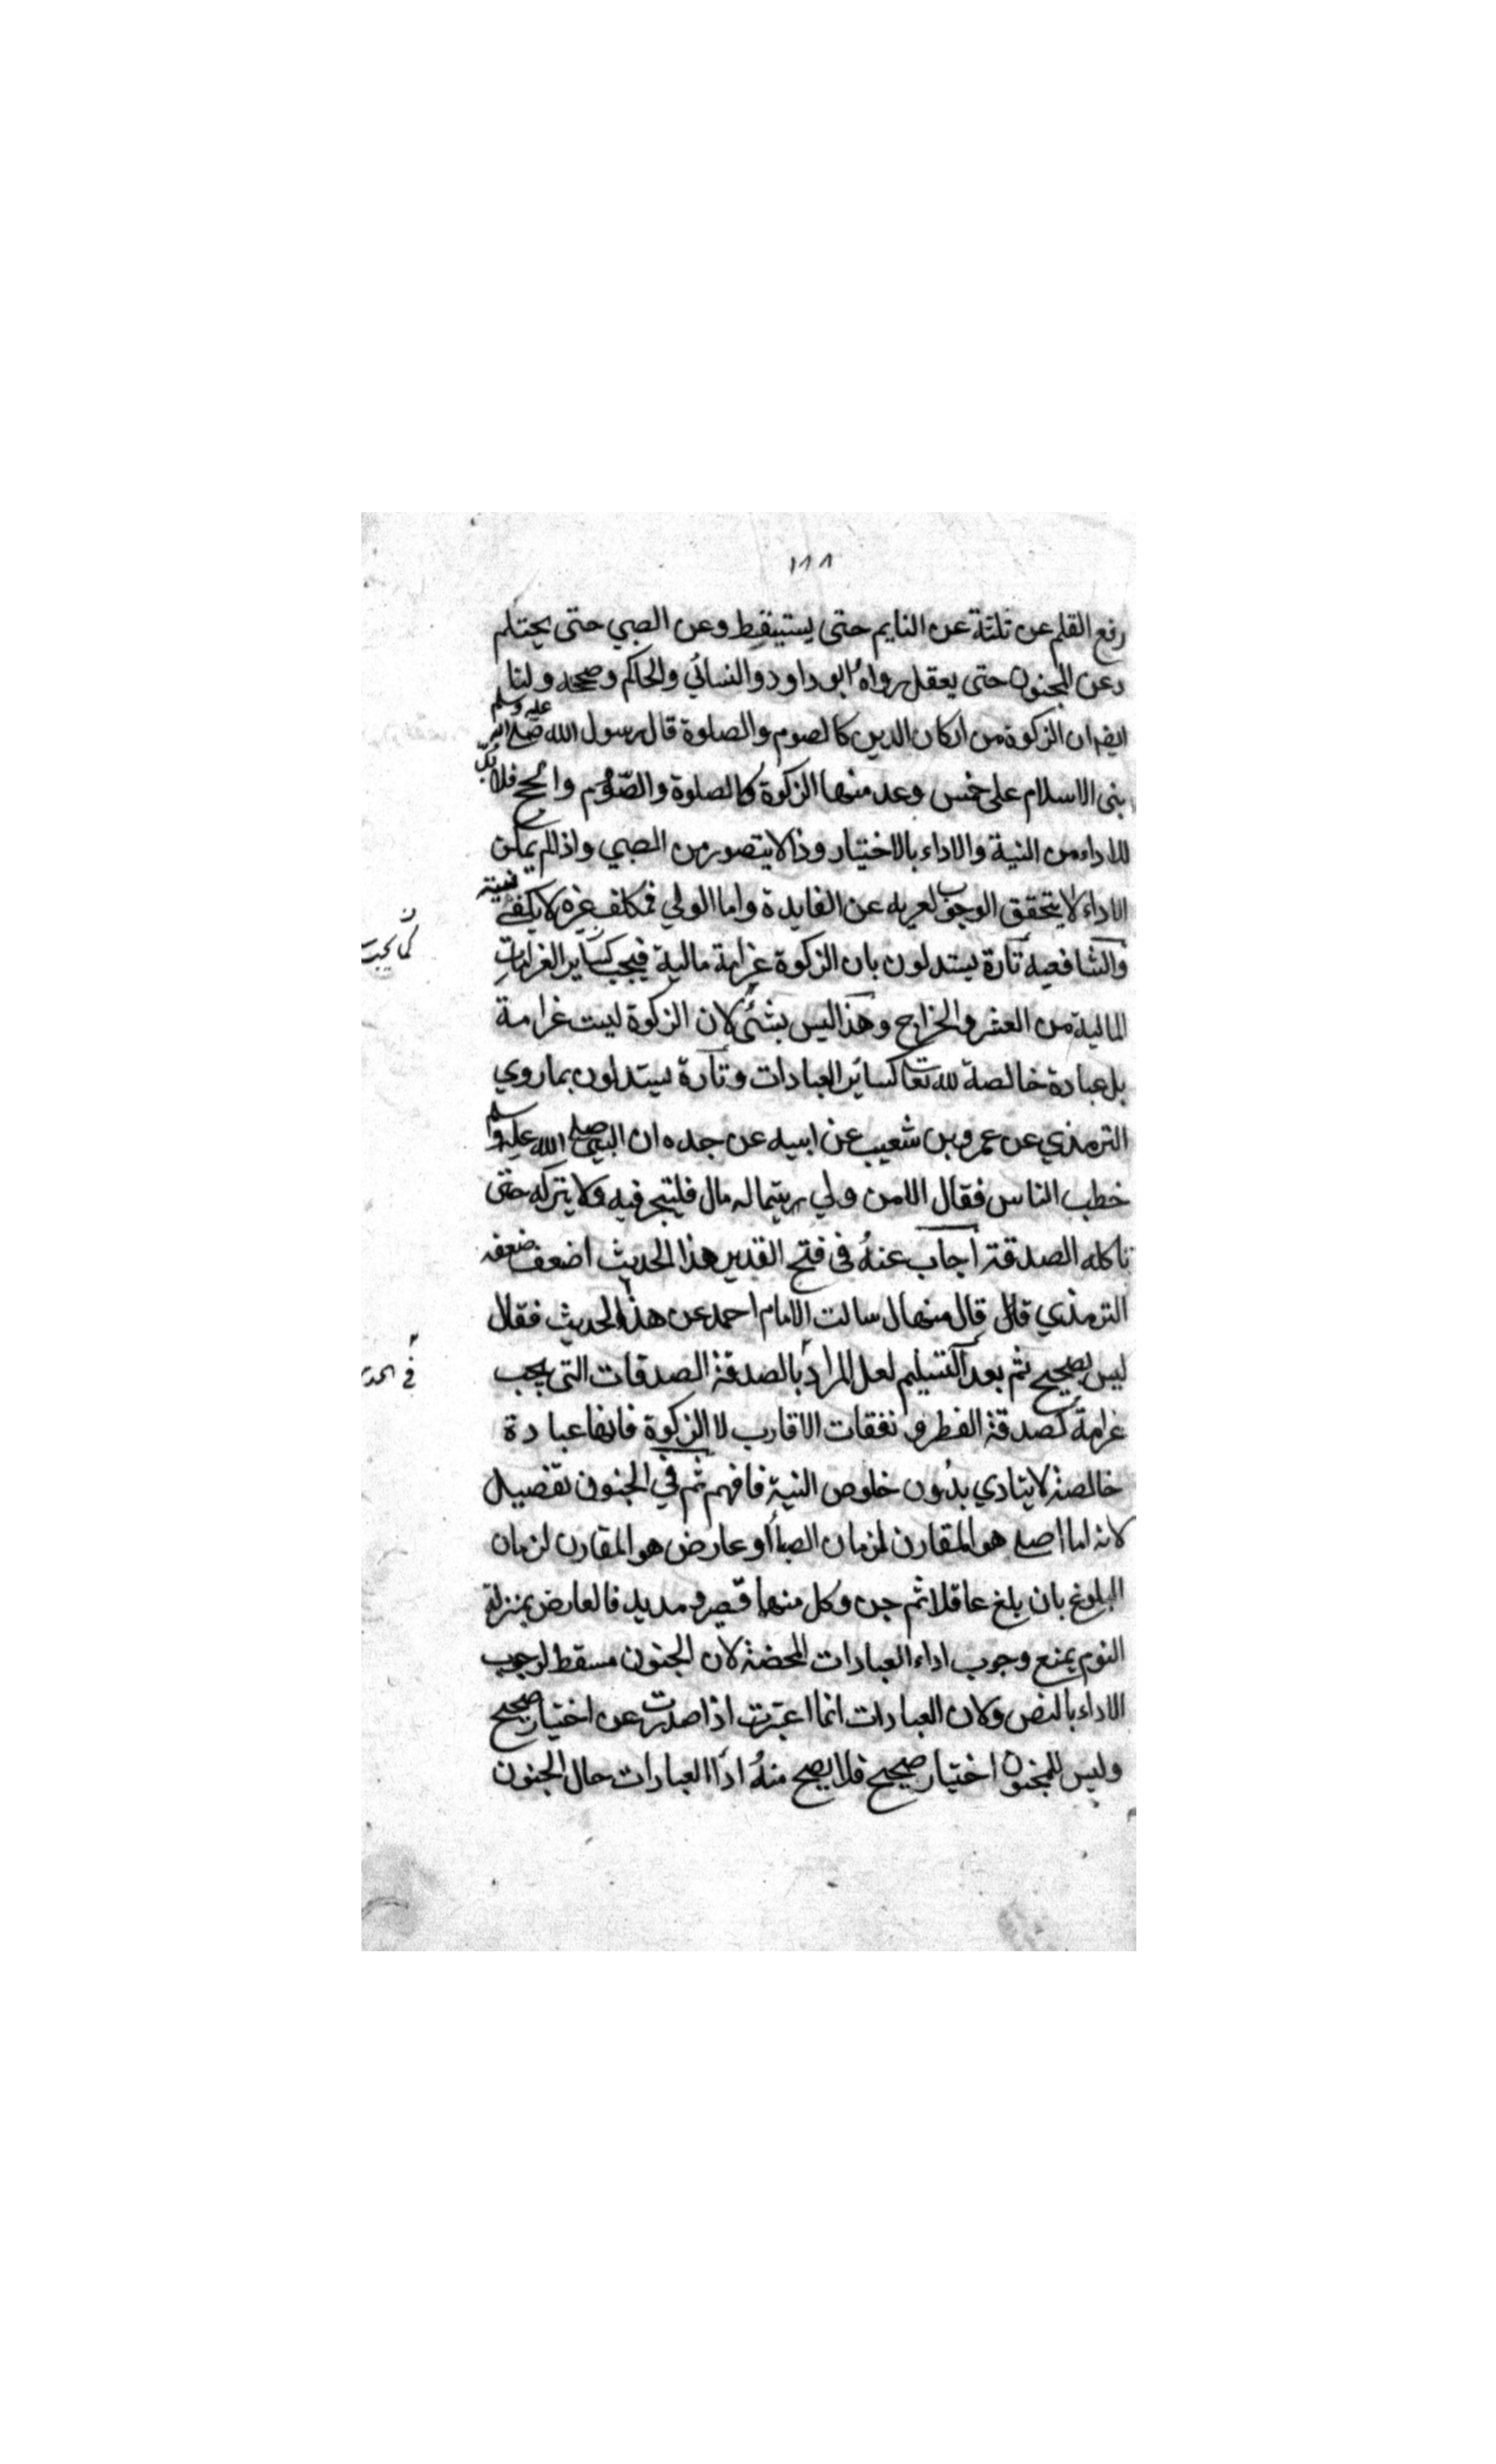 ١٨٨
رفع القلم عن ثلثة عن النايم حتى يستيقظ وعن الصبي حتى يحتلم
وعن المجنون حتى يعقل رواه ابو داود والنسائي والحاكم وصححه ولنا
ايضا ان الزكوة من اركان الدين كالصوم والصلوة قال رسول الله صلى الله عليه وسلم
بنى الاسلام على خمس وعد منها الزكوة كالصلوة والصوم والحج فلا بد
للاداء من النية والاداء بالاختيار وذا لا يتصور من الصبي واذا لم يمكن
الاداء لا يتحقق الوجوب لعريه عن الفايدة واما الولي فمكلف غيره لا يكفي نيته
والشافعيه تارة يستدلون بان الزكوة غرامة مالية فيجب كساير الغرامات
المالية من العشر والخراج وهذا ليس بشئ لان الزكوة ليست غرامة
بل عبادة خالصة لله تعا كسائر العبادات وتارة يستدلون بما روي
الترمذي عن عمرو بن شعيب عن ابيه عن جده ان النبي صلى الله عليه وسلم
خطب الناس فقال الا من ولي يتيما له مال فليتجر فيه ولا يتركه حتى
تاكله الصدقة اجاب عنه في فتح القدير هذا الحديث اضعف ضعفه
الترمذي قال قال منهال سالت الامام احمد عن هذا الحديث فقال
ليس بصحيح ثم بعد التسليم لعل المراد بالصدقة الصدقات التى يجب
غرامة كصدقة الفطر و نفقات الاقارب لا الزكوة فانها عبادة
خالصة لا يتادي بدون خلوص النية فافهم ثم في الجنون تفضيل
لانه اما اصلي هو المقارن لزمان الصبا او عارض هو المقارن لزمان
البلوغ بان بلغ عاقلا ثم جن وكل منها قصير و مديد فالعارض بمنزلة
النوم يمنع وجوب اداء العبادات المحضة لان الجنون مسقط لوجوب
الاداء بالنص ولان العبادات انما اعتبرت اذا صدرت عن اختيار صحيح
وليس للمجنون اختيار صحيح فلا يصح منه اداء العبادات حال الجنون
كما يجب